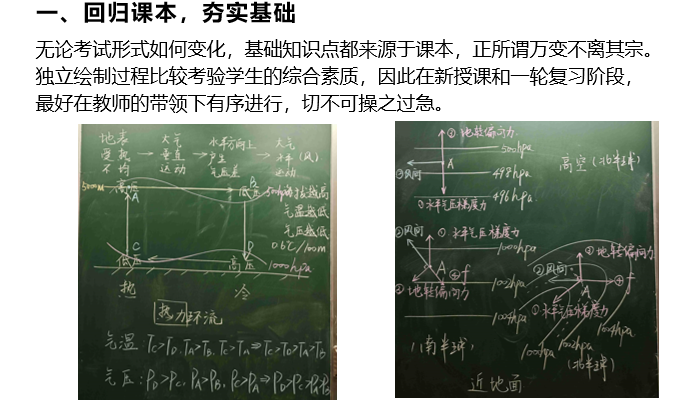 一、回归课本，夯实基础
无论考试形式如何变化，基础知识点都来源于课本，正所谓万变不离其宗。
独立绘制过程比较考验学生的综合素质，因此在新授课和一轮复习阶段，
最好在教师的带领下有序进行，切不可操之过急。
地表
受热
不均
大气
垂直
运动
水平方向上
产生
气压差
大气
水平（风）
运动
500m
高压
A
B
低压
500hpa
海拔越高
气温越低
气压越低
0.6℃/100m
C
低压
D
高压
1000hpa
热
冷
热力环流
气温：TC>TD、TA>TB、TC>TA⇒TC>TD>TA>TB
气压：PD>PC、PA>PB、PC>PA⇒PD>PC>PA>PB
②地转偏向力
500hpa
高空（北半球）
③风向
A
498hpa
496hpa
①水平气压梯度力
③风向
①水平气压梯度力
1000hpa
A
f
②地转偏向力
1002hpa
1004hpa
（南半球）
②地转偏向力
③风向
A
f
①水平气压梯度力
1000hpa
1002hpa
1004hpa
（北半球）
近地面